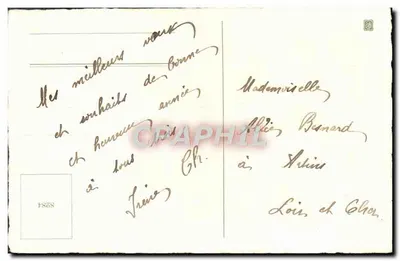 Mes meilleurs voeux
et souhaits de bonne
et heureuse année
à tous
Irène Ch.
Mademoiselle
Alice Besnard
à Artins
Loir et Cher
CPAPHIL